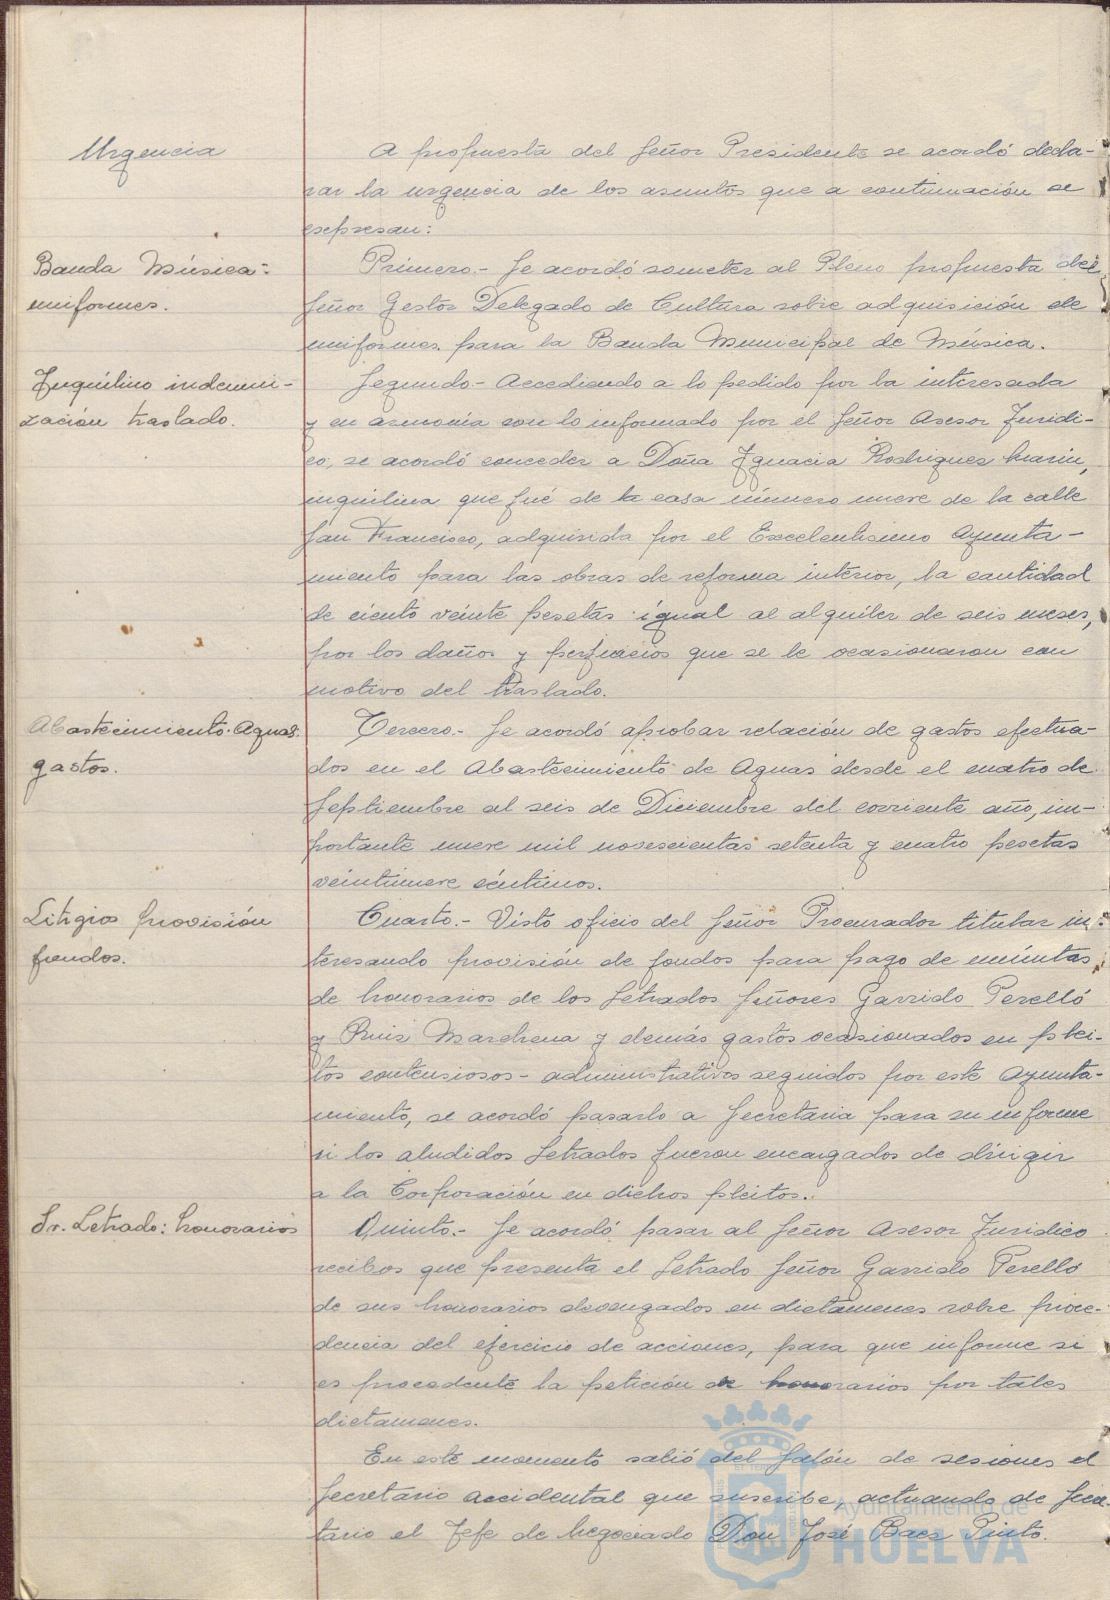 Urgencia
A propuesta del Señor Presidente se acordó decla-
rar la urgencia de los asuntos que a continuación se
expresan:
Banda Música:
uniformes.
Primero.- Se acordó someter al Pleno propuesta del
Señor Gestor Delegado de Cultura sobre adquisición de
uniformes para la Banda Municipal de Música.
Inquilino indemni-
zación traslado.
Segundo- Accediendo a lo pedido por la interesada
y en armonía con lo informado por el Señor Asesor Juridi-
co, se acordó conceder a Doña Ignacia Rodriguez Marin,
inquilina que fué de la casa número nueve de la calle
San Francisco, adquirida por el Excelentisimo Ayunta-
miento para las obras de reforma interior, la cantidad
de ciento veinte pesetas igual al alquiler de seis meses,
por los daños y perjuicios que se le ocasionaron con
motivo del traslado.
Abastecimiento Aguas.
gastos.
Tercero.- Se acordó aprobar relación de gastos efectua-
dos en el Abastecimiento de Aguas desde el cuatro de
Septiembre al seis de Diciembre del corriente año, im-
portante nueve mil novescientas setenta y cuatro pesetas
veintinueve céntimos.
Litigios provisión
fondos.
Cuarto.- Visto oficio del Señor Procurador titular in-
teresando provisión de fondos para pago de minutas
de honorarios de los Letrados Señores Garrido Perelló
y Ruiz Marchena y demás gastos ocasionados en plei-
tos contensiosos-administrativos seguidos por este Ayunta-
miento, se acordó pasarlo a Secretaria para su informe
si los aludidos Letrados fueron encargados de dirigir
a la Corporación en dichos pleitos.
Sr. Letrado: honorarios
Quinto.- Se acordó pasar al Señor Asesor Juridico
recibos que presenta el Letrado Señor Garrido Perelló
de sus honorarios devengados en dictamenes sobre proce-
dencia del ejercicio de acciones, para que informe si
es procedente la petición de honorarios por tales
dictamenes.
En este momento salió del Salón de sesiones el
Secretario accidental que suscribe, actuando de Secre-
tario el Jefe de Negociado Don José Baez Pinto.
Ayuntamiento de
HUELVA